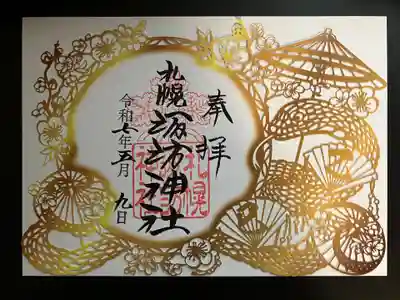 奉拝
札幌諏訪神社
令和七年五月 九日
札幌